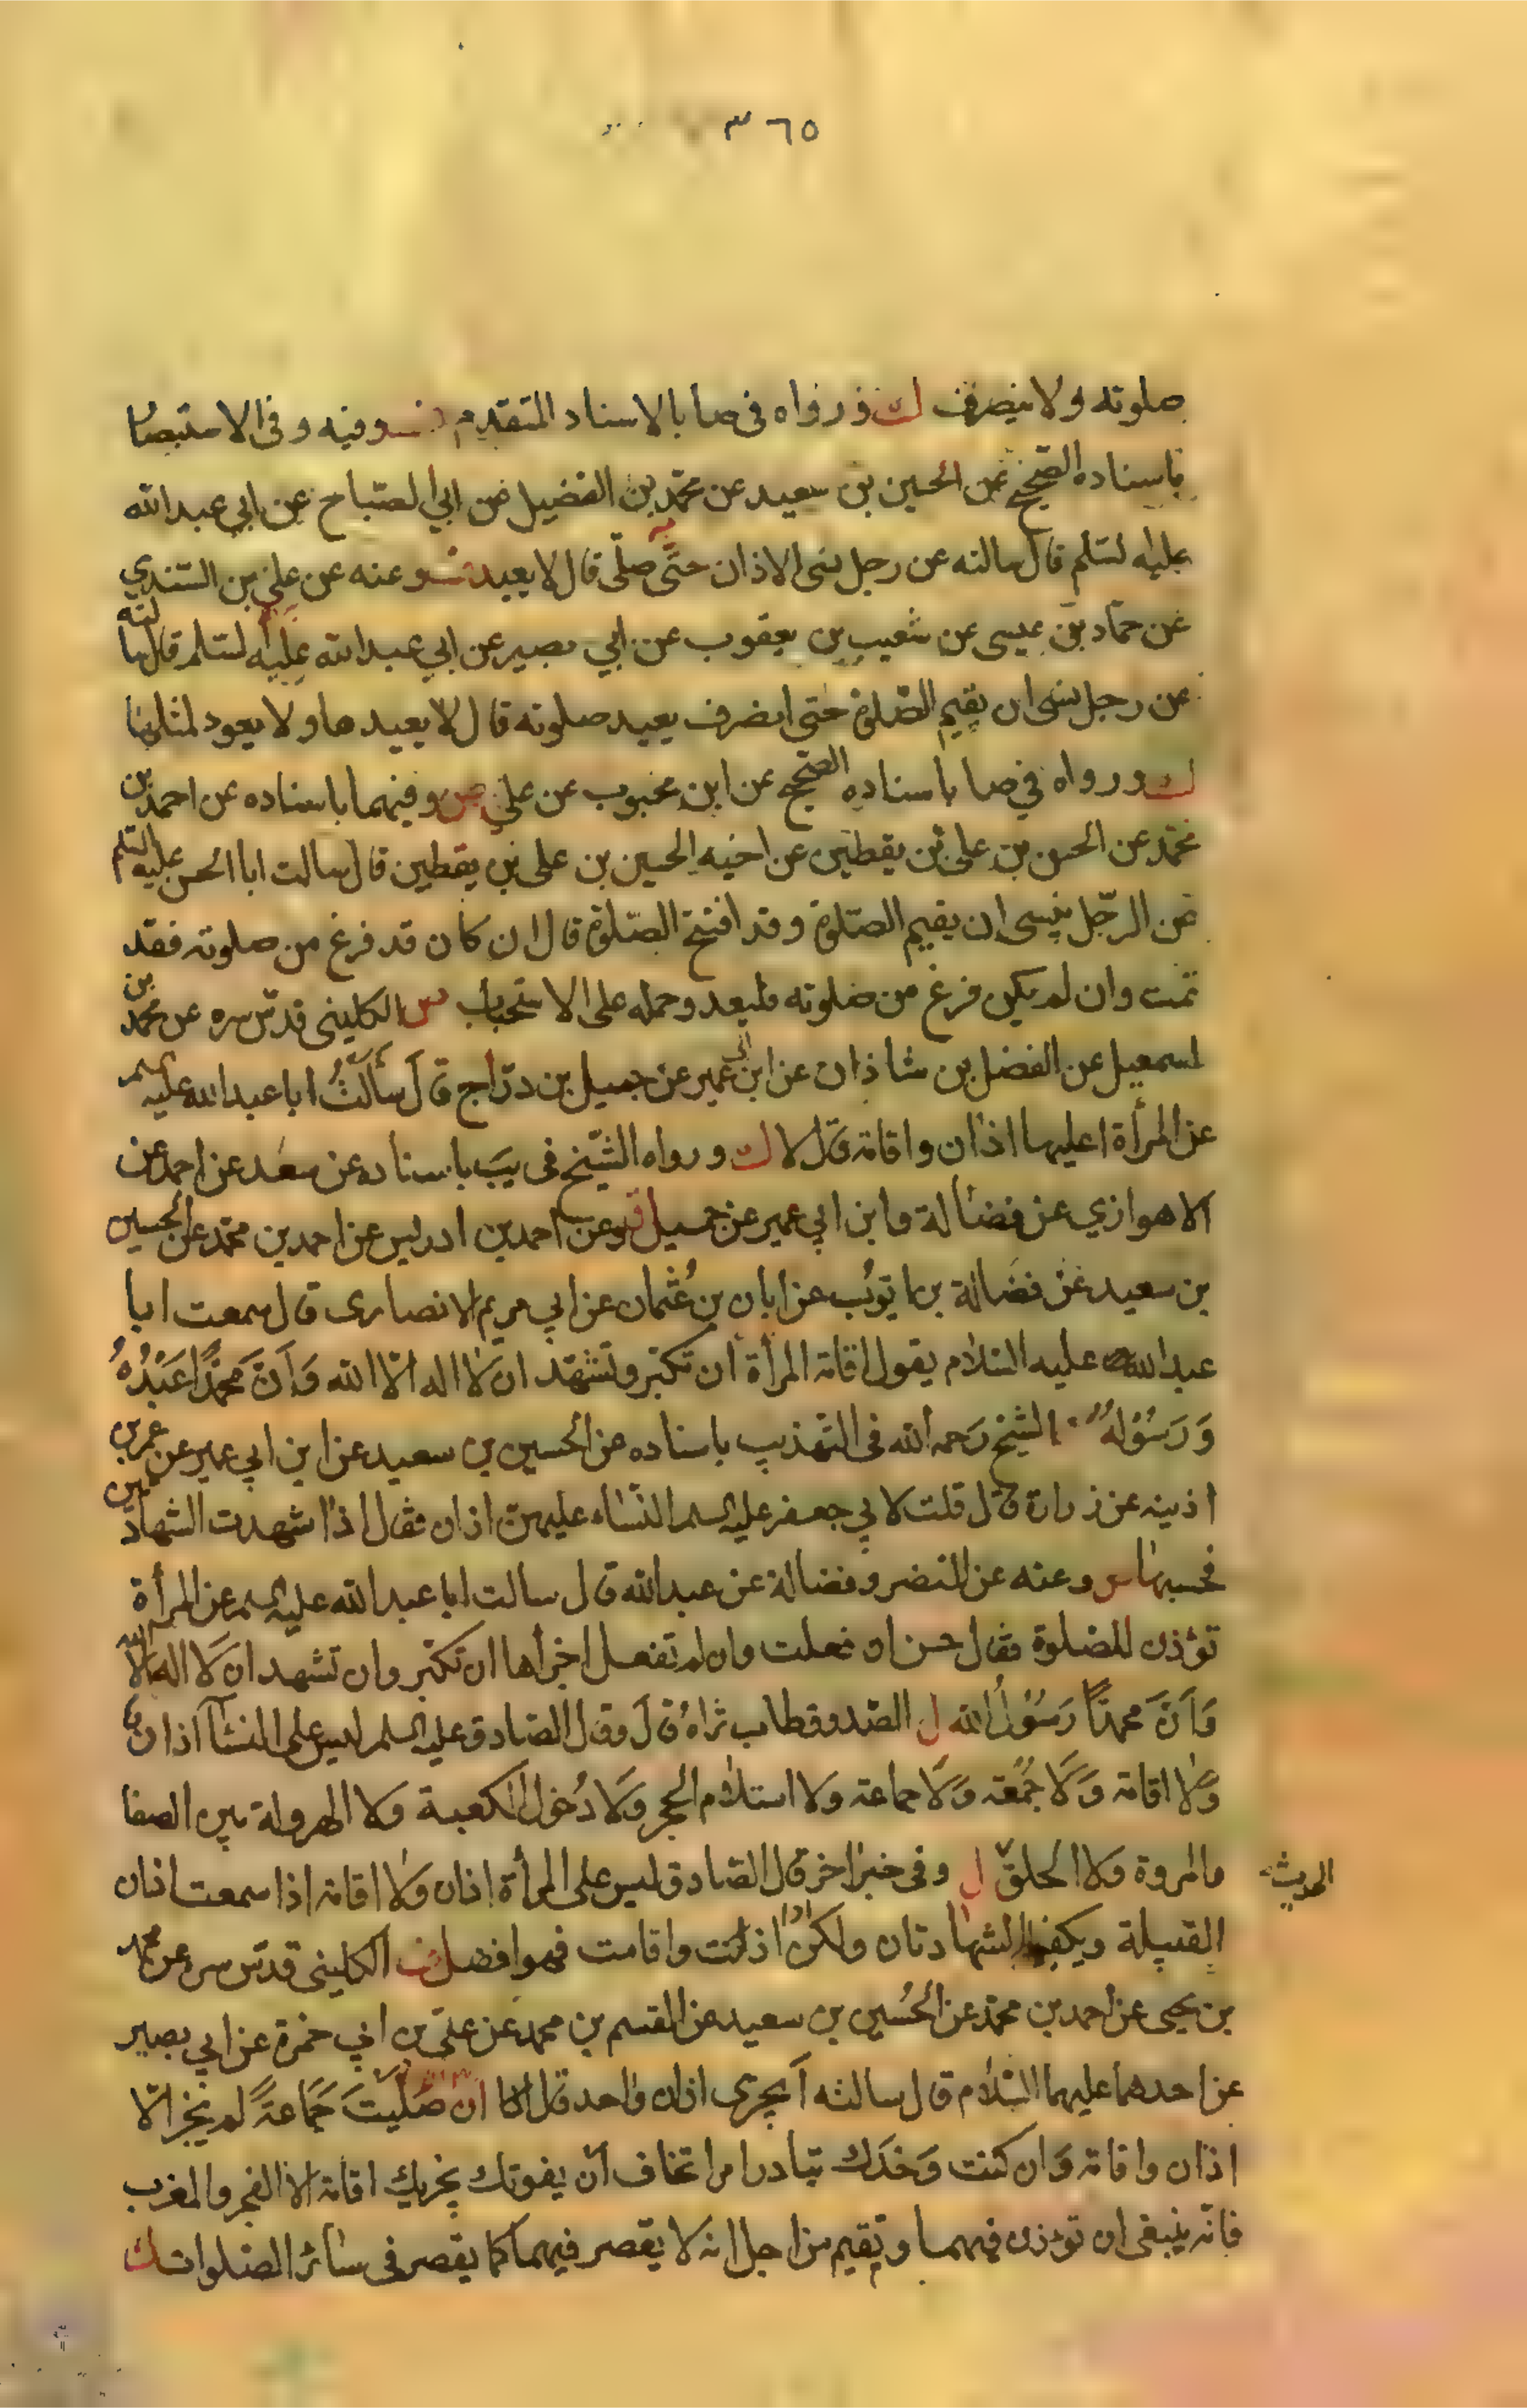 ٣٦٥
صلوته ولا ينصرف ك ورواه في صا بالاسناد المتقدم وفيه وفي الاستبصار
باسناده الصحيح عن الحسين بن سعيد عن محمد بن الفضيل عن ابي الصباح عن ابي عبد الله
عليه السلم قال سالته عن رجل نسى الاذان حتى صلى قال لا يعيد وعنه عن علي بن السندي
عن حماد بن عيسى عن شعيب بن يعقوب عن ابي بصير عن ابي عبد الله عليه السلم قال سالته
عن رجل نسى ان يقيم الصلوة حتى انصرف يعيد صلوته قال لا يعيدها ولا يعود لمثلها
ك ورواه في صا باسناده الصحيح عن ابن محبوب عن علي وفيهما باسناده عن احمد بن
محمد عن الحسن بن علي بن يقطين عن اخيه الحسين بن علي بن يقطين قال سالت ابا الحسن عليه السلم
عن الرجل ينسى ان يقيم الصلوة وقد افتتح الصلوة قال ان كان قد فرغ من صلوته فقد
تمت وان لم يكن فرغ من صلوته فليعد وحمله على الاستحباب الكليني قدّس سره عن محمد بن
اسمعيل عن الفضل بن شاذان عن ابن ابي عمير عن جميل بن درّاج قال سَأَلْتُ ابا عبد الله عليه السلم
عن المرأة اعليها اذان واقامة قال لا ك ورواه الشّيخ في يب باسناده عن سعد عن احمد عن
الاهوازي عن فضالة وابن ابي عمير عن جميل وعن احمد بن ادريس عن احمد بن محمد عن الحسين
بن سعيد عن فضالة بن ايّوب عن ابان بن عُثمان عن ابي مريم الانصارى قال سمعت ابا
عبد الله عليه السّلام يقول اقامة المرأة ان تكبّر وتشهّد ان لا اله الّا الله وَاَنَّ مُحَمَّدًا عَبْدُهُ
وَرَسُوْلُهُ الشيخ رَحمه الله في التهذيب باسناده عن الحسين بن سعيد عن ابن ابي عمير عن عمر بن
اذينه عن زرارة قال قلت لابي جعفر عليه السلم النّساء عليهنّ اذان فقال اذا شهدت الشهادتين
فحسبها وعنه عن النضر وفضالة عن عبد الله قال سالت ابا عبد الله عليه السلم عن المرأة
تؤذن للصلوة فقال حسن ان فعلت وان لم تفعل اجزأها ان تكبّر وان تشهد ان لا اله الا الله
وَاَنَّ محمدًا رَسُوْلُ الله ل الصّدوق طاب ثراهُ قال وقال الصّادق عليه السلم ليس على النسآء اذان
ولا اقامة وَلَا جُمُعَة وَلَا جماعة ولا استلام الحجر وَلَا دُخول الكعبة ولا الهرولة بين الصفا
والمروة ولا الحلق ل وفي خبر اخر قال الصّادق ليس على المرأة اذان ولا اقامة اذا سمعت اذان
الحديث
القبيلة ويكفيها الشهادتان ولكن اذا اذنت واقامت فهو افضل الكليني قدّس سره عن محمد
بن يحيى عن احمد بن محمّد عن الحُسين بن سعيد عن القسم بن محمد عن علي بن ابي حمزة عن ابي بصير
عن احدهما عليهما السّلام قال سالته اَيجزي اذان واحد قال ان صَلَّيْتَ جَمَاعَةً لم يجز الّا
اذان واقامة وَان كنت وَحْدَك تبادر امرا تخاف ان يفوتك يجزيك اقامة الا الفجر والمغرب
فانّه ينبغي ان تؤذن فيهما وتقيم من اجل انه لا يقصر فيهما كما يقصر في سائر الصلوات ك